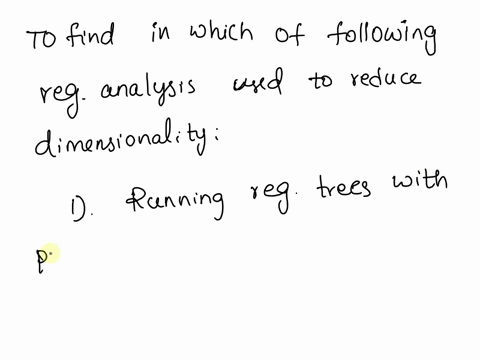 To find in which of following
reg. analysis used to reduce
dimensionality:
1). Running reg. trees with
p